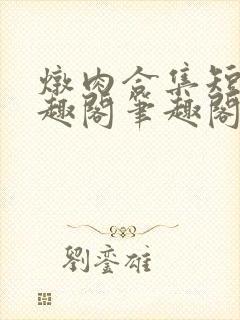 燉肉合集短
趣閣筆趣閣
劉鑾雄